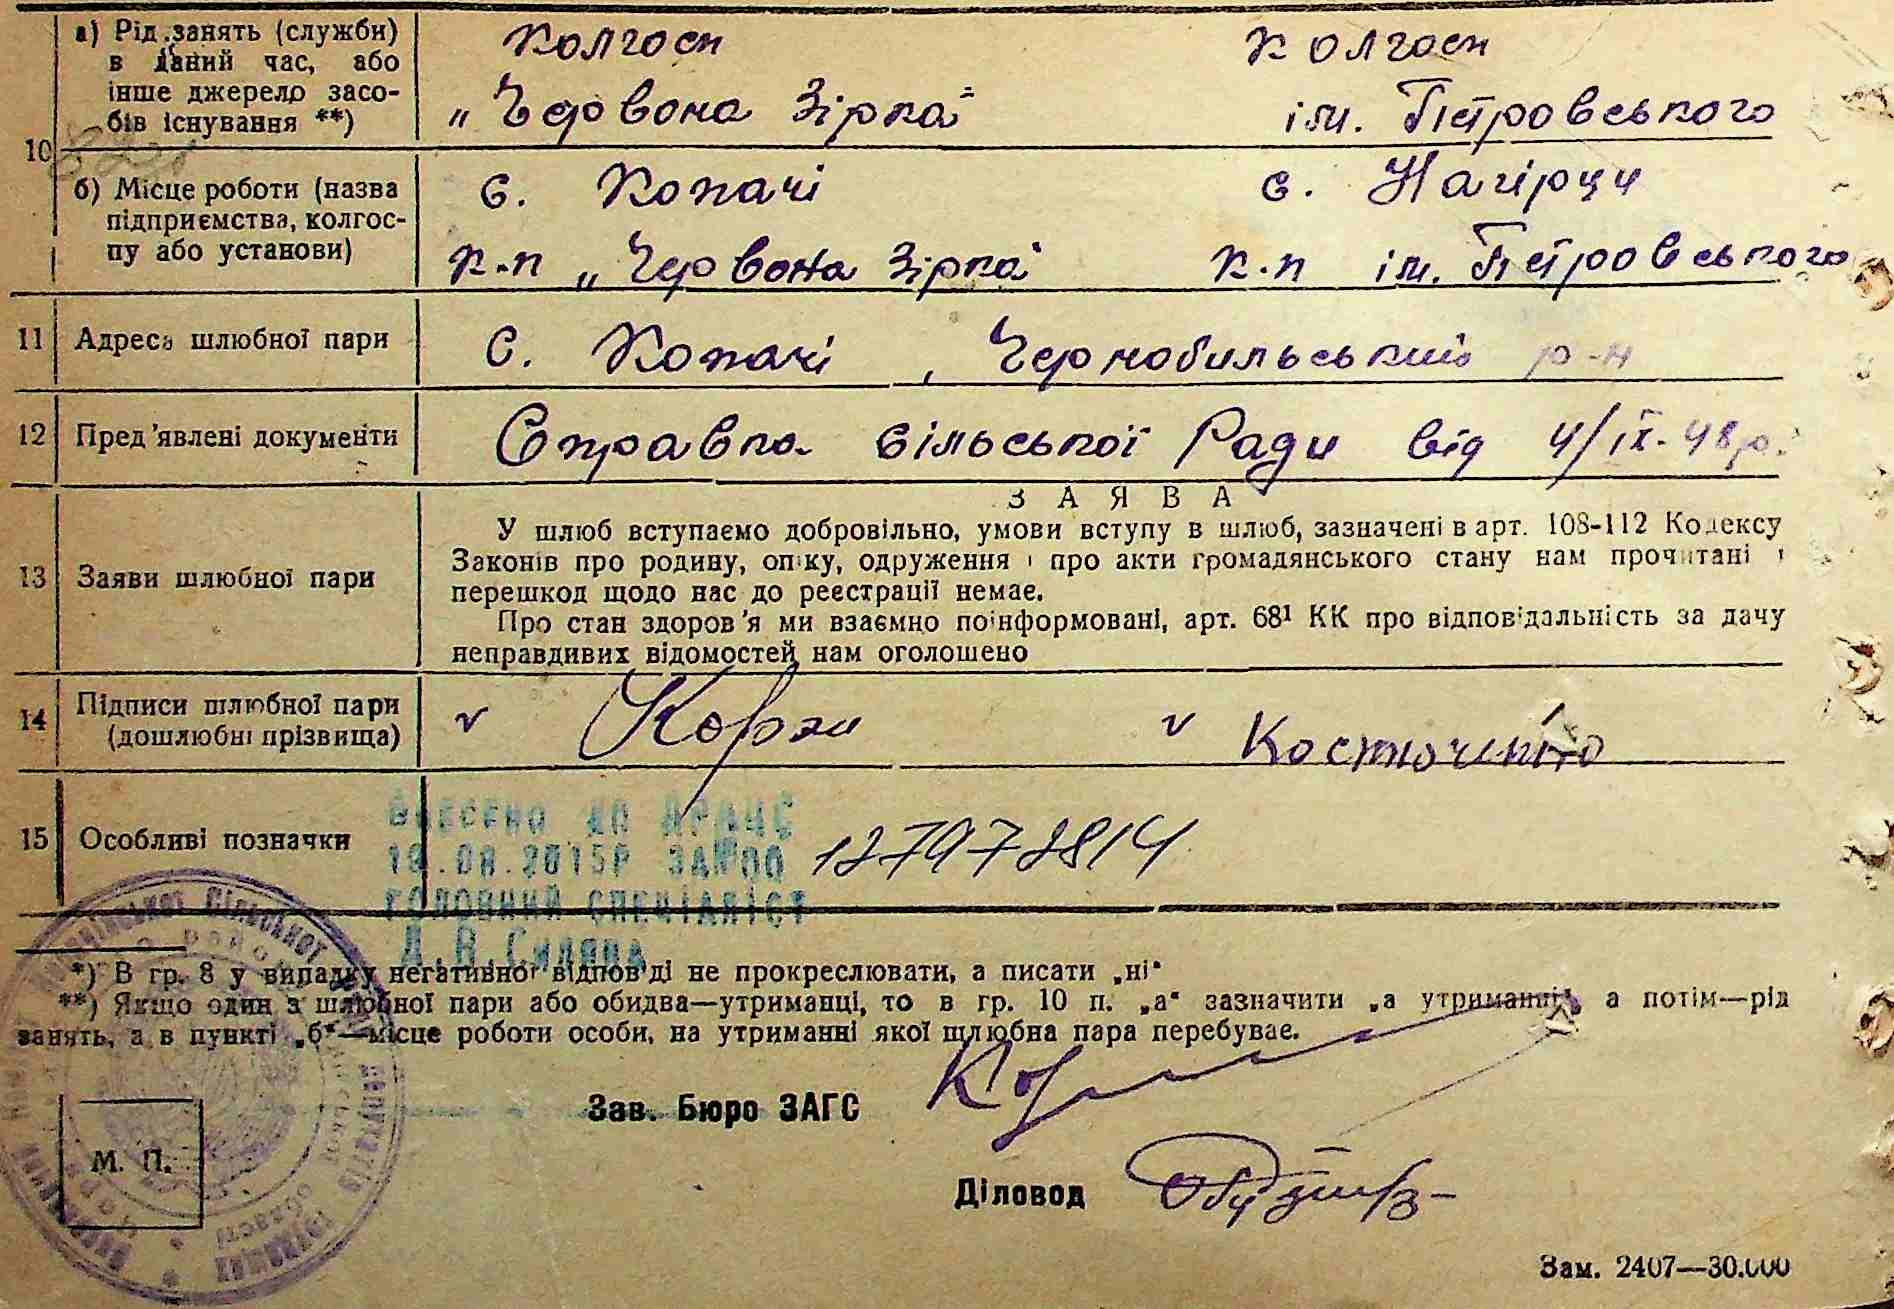 10
а) Рід занять (служби) в даний час, або інше джерело засо-
бів існування **)
Колгосп
„Червона Зірка“
Колгосп
ім. Петровського
б) Місце роботи (назва
підприємства, колгос-
пу або установи)
с. Копачі
к-п „Червона Зірка“
с. Нагірци
к-п ім. Петровського
11 Адреса шлюбної пари
с. Копачі, Чернобильський р-н
12 Пред'явлені документи
Справка сільської Ради від 4/IX-48р.
ЗАЯВА
13 Заяви шлюбної пари
У шлюб вступаємо добровільно, умови вступу в шлюб, зазначені в арт. 108-112 Кодексу
Законів про родину, опіку, одруження і про акти громадянського стану нам прочитані і
перешкод щодо нас до реєстрації немає.
Про стан здоров'я ми взаємно поінформовані, арт. 68¹ КК про відповідальність за дачу
неправдивих відомостей нам оголошено
14 Підписи шлюбної пари
(дошлюбні прізвища)
v Корж v Костюченко
15 Особливі позначки
Внесено до ДРАЦС
.08.2015р
головний спеціаліст
127972814
*) В гр. 8 у випадку негативної відповіді не прокреслювати, а писати „ні“
**) Якщо один з шлюбної пари або обидва—утриманці, то в гр. 10 п. „а“ зазначити „а утриманні“, а потім—рід
занять, а в пункті „б“—місце роботи особи, на утриманні якої шлюбна пара перебуває.
Зав. Бюро ЗАГС
М. П.
Діловод
Зам. 2407—30.000